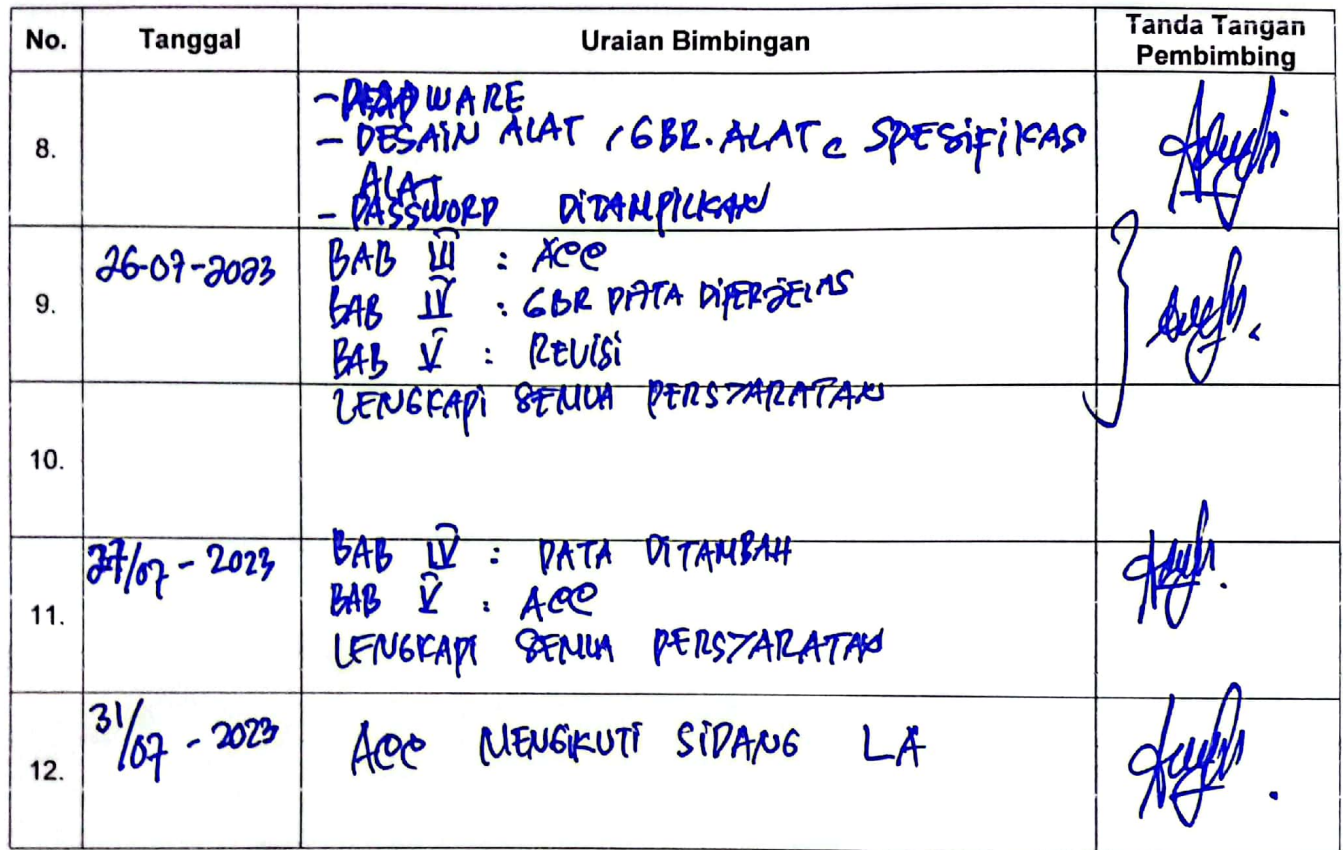 No. Tanggal Uraian Bimbingan Tanda Tangan Pembimbing
8.
- WARE
- DESAIN ALAT, GBR. ALAT, SPESIFIKASI
ALAT
- PASSWORD DITAMPILKAN
9. 26-07-2023
BAB III : ACC
BAB IV : GBR DATA DIPERJELAS
BAB V : REVISI
LENGKAPI SEMUA PERSYARATAN
10.
11. 27/07 - 2023
BAB IV : DATA DITAMBAH
BAB V : ACC
LENGKAPI SEMUA PERSYARATAN
12. 31/07 - 2023
ACC MENGIKUTI SIDANG LA